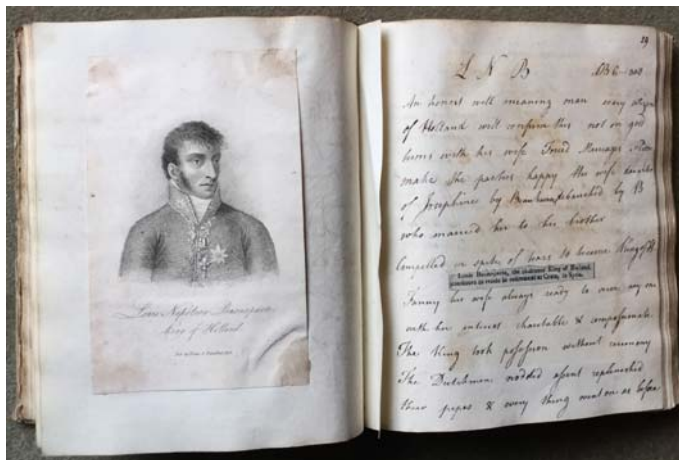 Louis Napoleon Buonaparte
King of Holland.
29
L N B
An honest well meaning man every
of Holland will confirm this not on good
terms with his wife Forced Marriages
make the parties happy this wife daughter
of Josephine by Beauharnais by B
who married her to his brother
Compelled in spite of tears to become King of H
Louis Buonaparte, the abdicated King of Holland,
continues to reside in retirement at Gratz, in Styria.
Fanny his wife always ready to any one
with her interest charitable & compassionate
The King took possession without ceremony
The Dutchmen nodded assent replenished
their pipes & every thing went on as before